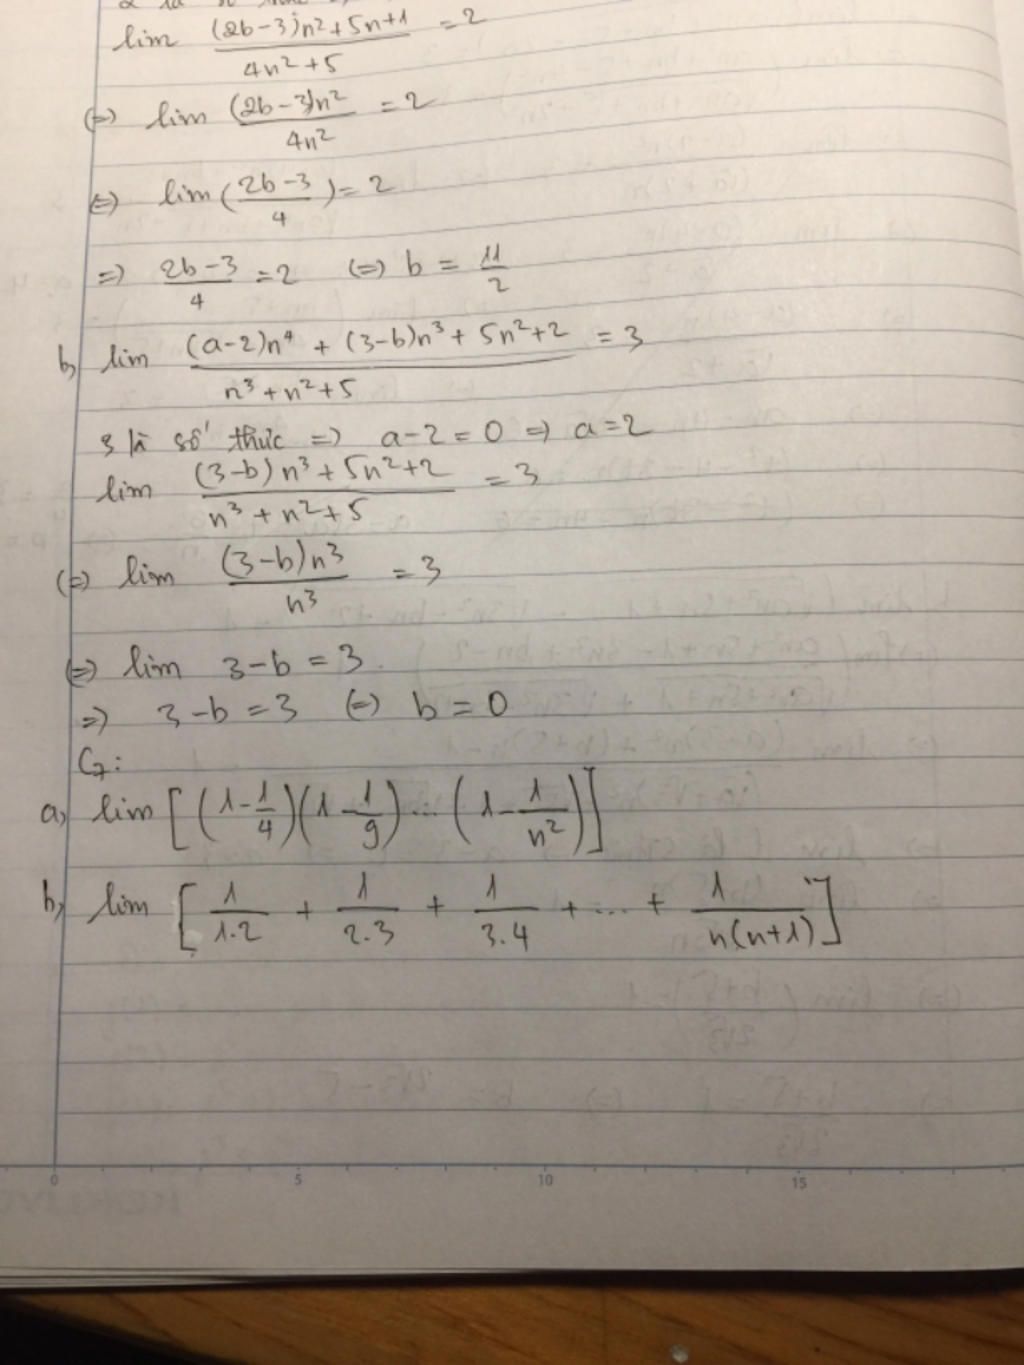 lim (2b-3)n²+5n+1 / 4n²+5 = 2
(=) lim (2b-3)n² / 4n² = 2
(=) lim ( 2b-3 / 4 ) = 2
=) 2b-3 / 4 = 2 (=) b = 11/2
b, lim (a-2)n⁴ + (3-b)n³ + 5n²+2 / n³+n²+5 = 3
3 là số thực =) a-2=0 =) a=2
lim (3-b)n³+5n²+2 / n³+n²+5 = 3
(=) lim (3-b)n³ / n³ = 3
(=) lim 3-b = 3.
=) 3-b = 3 (=) b = 0
C7:
a, lim [ (1-1/4)(1-1/9)...(1-1/n²) ]
b, lim [ 1/1.2 + 1/2.3 + 1/3.4 + ... + 1/n(n+1) ]
0 5 10 15